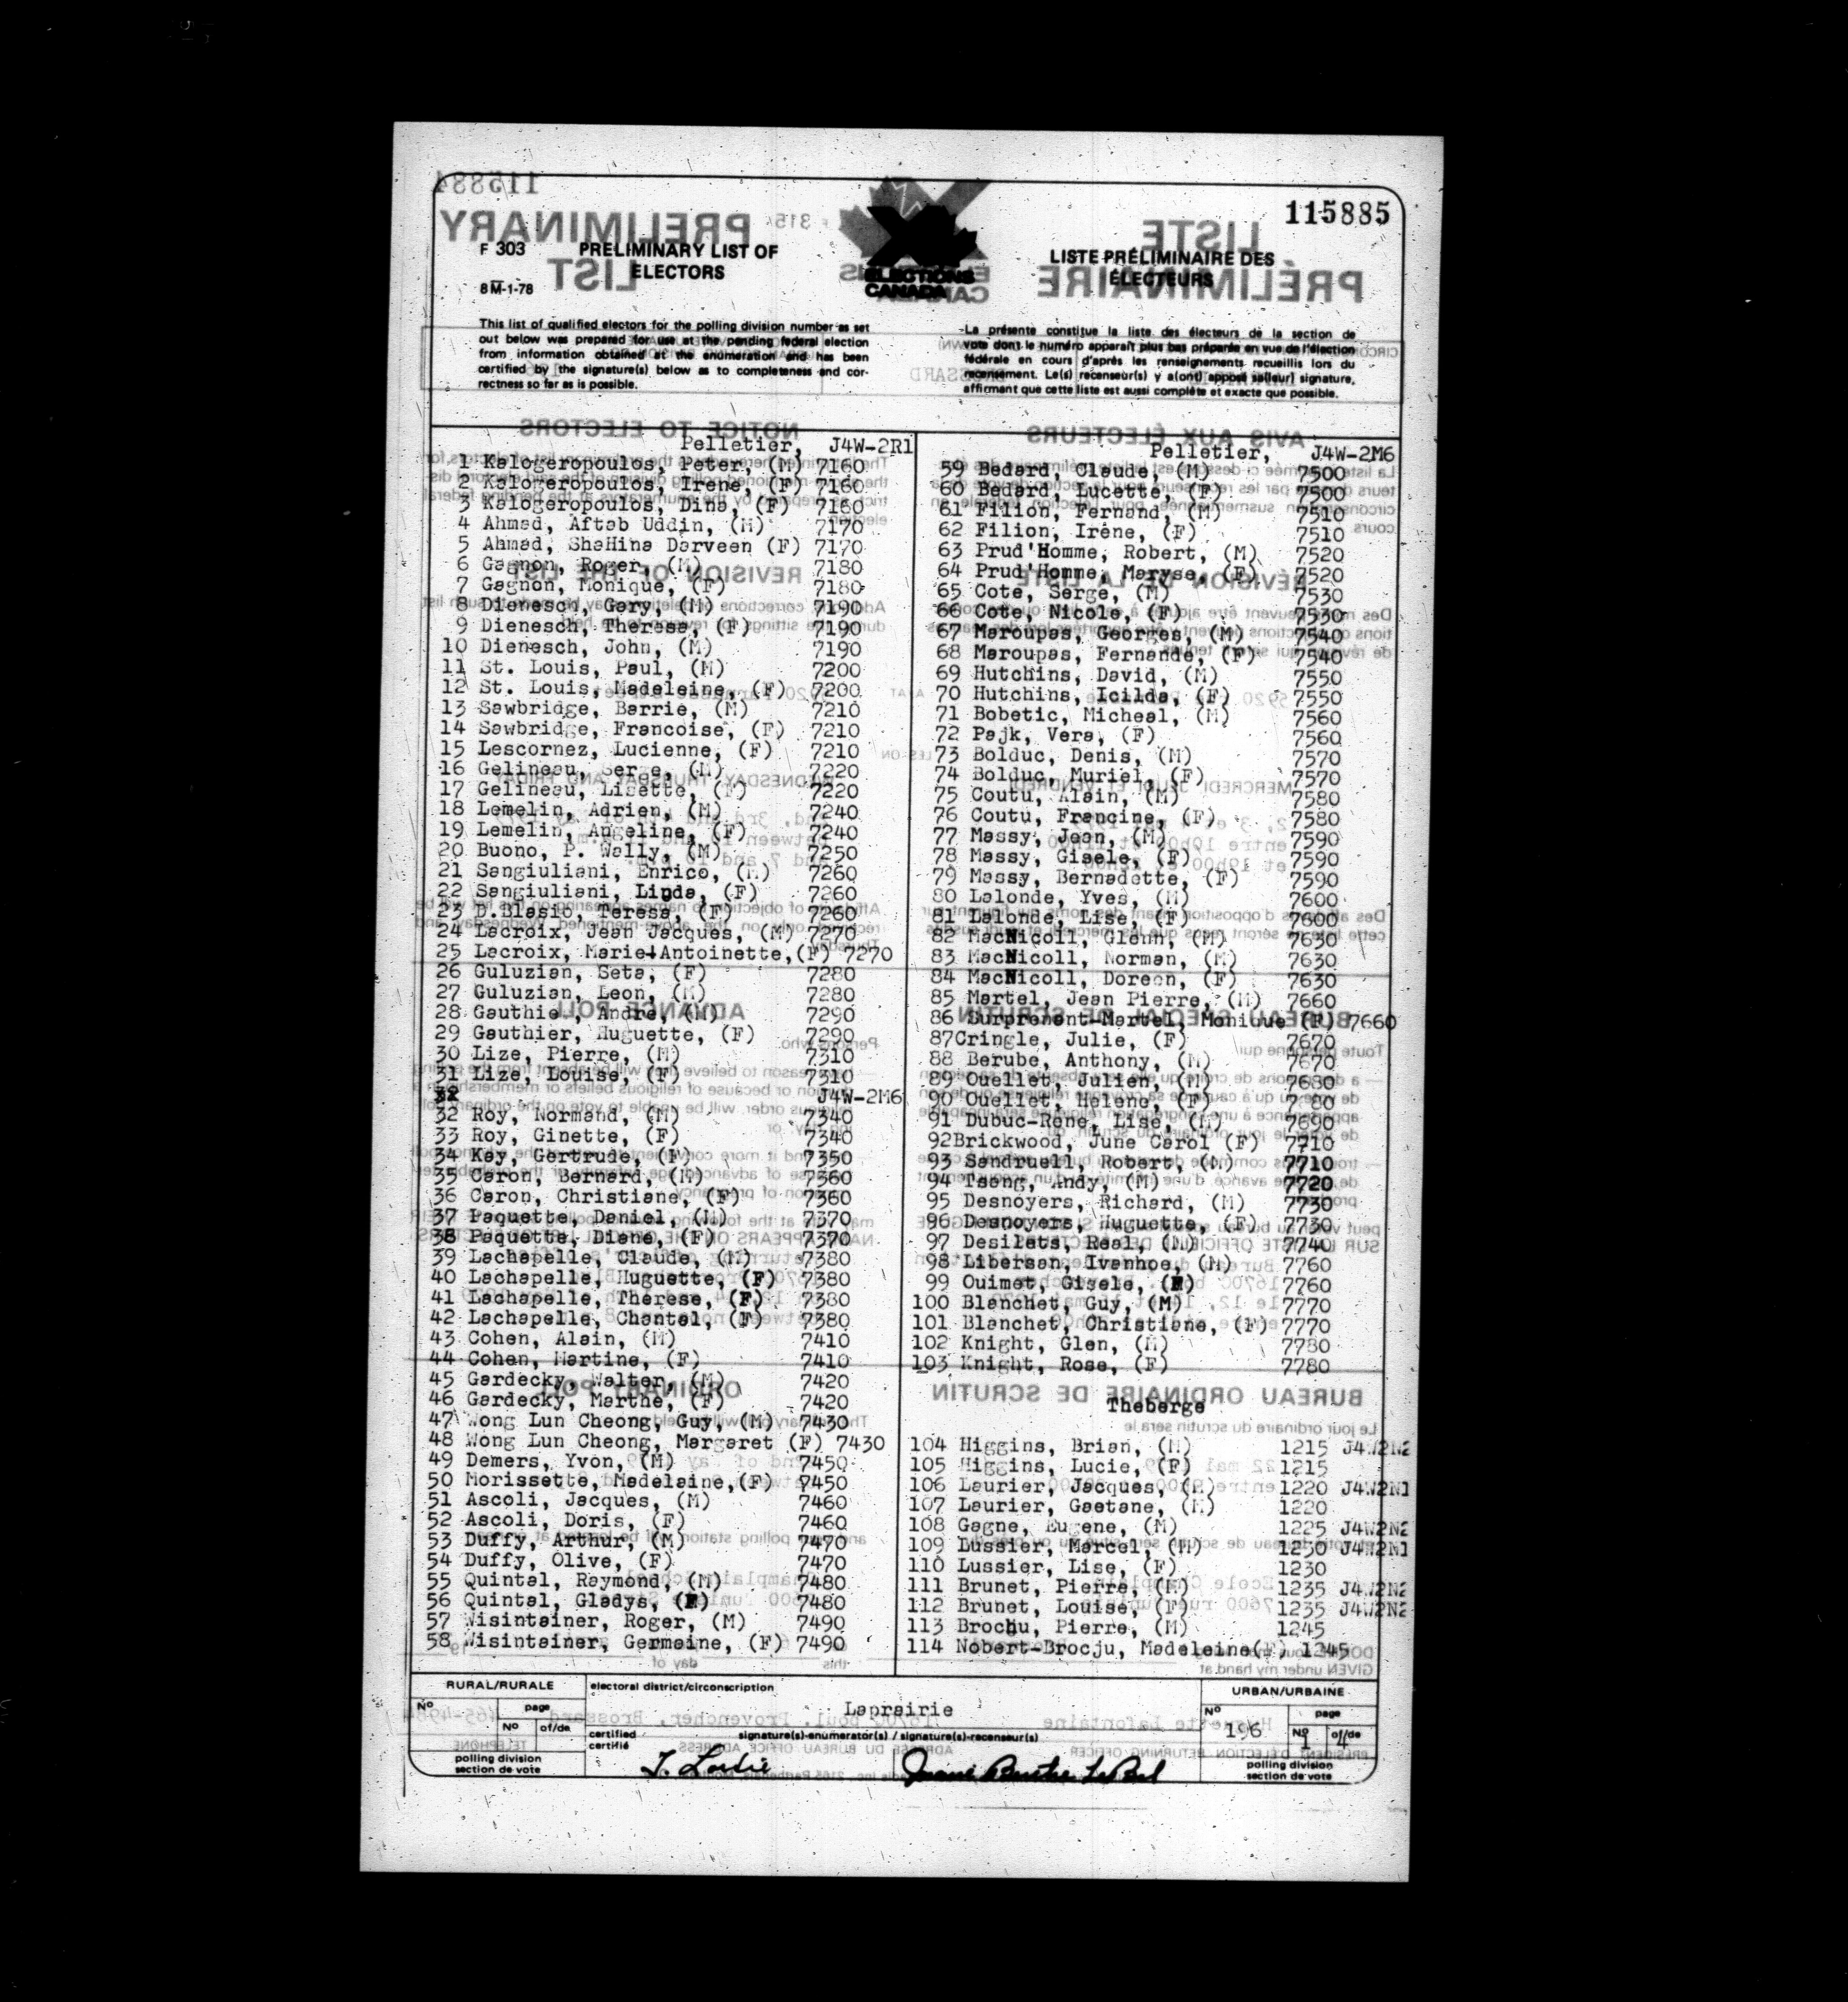 115885
F 303 PRELIMINARY LIST OF ELECTORS
8 M-1-78
ELECTIONS CANADA
LISTE PRÉLIMINAIRE DES ÉLECTEURS
This list of qualified electors for the polling division number as set
out below was prepared for use at the pending federal election
from information obtained at the enumeration and has been
certified by the signature(s) below as to completeness and cor-
rectness so far as is possible.
La présente constitue la liste des électeurs de la section de
vote dont le numéro apparaît plus bas préparée en vue de l'élection
fédérale en cours d'après les renseignements recueillis lors du
recensement. Le(s) recenseur(s) y a(ont) apposé sa(leur) signature,
affirmant que cette liste est aussi complète et exacte que possible.
Pelletier, J4W-2R1
1 Kalogeropoulos, Peter, (M) 7160
2 Kalogeropoulos, Irene, (F) 7160
3 Kalogeropoulos, Dina, (F) 7160
4 Ahmad, Aftab Uddin, (M) 7170
5 Ahmad, ShaHina Darveen (F) 7170
6 Gagnon, Roger, (M) 7180
7 Gagnon, Monique, (F) 7180
8 Dienesch, Gary, (M) 7190
9 Dienesch, Theresa, (F) 7190
10 Dienesch, John, (M) 7190
11 St. Louis, Paul, (M) 7200
12 St. Louis, Madeleine, (F) 7200
13 Sawbridge, Barrie, (M) 7210
14 Sawbridge, Francoise, (F) 7210
15 Lescornez, Lucienne, (F) 7210
16 Gelineau, Serge, (M) 7220
17 Gelineau, Lisette, (F) 7220
18 Lemelin, Adrien, (M) 7240
19 Lemelin, Angeline, (F) 7240
20 Buono, P. Wally, (M) 7250
21 Sangiuliani, Enrico, (M) 7260
22 Sangiuliani, Linda, (F) 7260
23 D.Blasio, Teresa, (F) 7260
24 Lacroix, Jean Jacques, (M) 7270
25 Lacroix, Marie-Antoinette,(F) 7270
26 Guluzian, Seta, (F) 7280
27 Guluzian, Leon, (M) 7280
28 Gauthie., André, (M) 7290
29 Gauthier, Huguette, (F) 7290
30 Lize, Pierre, (M) 7310
31 Lize, Louise, (F) 7310
J4W-2M6
32 Roy, Normand, (M) 7340
33 Roy, Ginette, (F) 7340
34 Kay, Gertrude, (F) 7350
35 Caron, Bernard, (M) 7360
36 Caron, Christiane, (F) 7360
37 Paquette, Daniel, (M) 7370
38 Paquette, Diane, (F) 7370
39 Lachapelle, Claude, (M) 7380
40 Lachapelle, Huguette, (F) 7380
41 Lachapelle, Therese, (F) 7380
42 Lachapelle, Chantal, (F) 7380
43 Cohen, Alain, (M) 7410
44 Cohen, Martine, (F) 7410
45 Gardecky, Walter, (M) 7420
46 Gardecky, Marthe, (F) 7420
47 Wong Lun Cheong, Guy, (M) 7430
48 Wong Lun Cheong, Margaret (F) 7430
49 Demers, Yvon, (M) 7450
50 Morissette, Madelaine,(F) 7450
51 Ascoli, Jacques, (M) 7460
52 Ascoli, Doris, (F) 7460
53 Duffy, Arthur, (M) 7470
54 Duffy, Olive, (F) 7470
55 Quintal, Raymond, (M) 7480
56 Quintal, Gladys, (F) 7480
57 Wisintainer, Roger, (M) 7490
58 Wisintainer, Germaine, (F) 7490
Pelletier, J4W-2M6
59 Bedard, Claude, (M) 7500
60 Bedard, Lucette, (F) 7500
61 Filion, Fernand, (M) 7510
62 Filion, Irène, (F) 7510
63 Prud'Homme, Robert, (M) 7520
64 Prud'Homme, Maryse, (F) 7520
65 Cote, Serge, (M) 7530
66 Cote, Nicole, (F) 7530
67 Maroupas, Georges, (M) 7540
68 Maroupas, Fernande, (F) 7540
69 Hutchins, David, (M) 7550
70 Hutchins, Icilda, (F) 7550
71 Bobetic, Micheal, (M) 7560
72 Pajk, Vera, (F) 7560
73 Bolduc, Denis, (M) 7570
74 Bolduc, Muriel, (F) 7570
75 Coutu, Alain, (M) 7580
76 Coutu, Francine, (F) 7580
77 Massy, Jean, (M) 7590
78 Massy, Gisele, (F) 7590
79 Massy, Bernadette, (F) 7590
80 Lalonde, Yves, (M) 7600
81 Lalonde, Lise, (F) 7600
82 MacNicoll, Glenn, (M) 7630
83 MacNicoll, Norman, (M) 7630
84 MacNicoll, Doreen, (F) 7630
85 Martel, Jean Pierre, (M) 7660
86 Surprenant-Martel, Monique (F) 7660
87Cringle, Julie, (F) 7670
88 Berube, Anthony, (M) 7670
89 Ouellet, Julien, (M) 7680
90 Ouellet, Helene, (F) 7680
91 Dubuc-Rene, Lise, (M) 7690
92Brickwood, June Carol (F) 7710
93 Sandruell, Robert, (M) 7710
94 Tsang, Andy, (M) 7720
95 Desnoyers, Richard, (M) 7730
96 Desnoyers, Huguette, (F) 7730
97 Desilets, Real, (M) 7740
98 Libersan, Ivanhoe, (M) 7760
99 Ouimet, Gisele, (F) 7760
100 Blanchet, Guy, (M) 7770
101 Blanchet, Christiane, (F) 7770
102 Knight, Glen, (M) 7780
103 Knight, Rose, (F) 7780
Theberge
104 Higgins, Brian, (M) 1215 J4W2N2
105 Higgins, Lucie, (F) 1215
106 Laurier, Jacques, (M) 1220 J4W2N1
107 Laurier, Gaetane, (M) 1220
108 Gagne, Eugene, (M) 1225 J4W2N2
109 Lussier, Marcel, (M) 1230 J4W2N1
110 Lussier, Lise, (F) 1230
111 Brunet, Pierre, (M) 1235 J4W2N2
112 Brunet, Louise, (F) 1235 J4W2N2
113 Brochu, Pierre, (M) 1245
114 Nobert-Brocju, Madeleine(F) 1245
RURAL/RURALE
Nº page
Nº of/de
polling division
section de vote
electoral district/circonscription
Laprairie
certified
certifié
signature(s)-enumerator(s) / signature(s)-recenseur(s)
URBAN/URBAINE
Nº 196 page
Nº 1 of/de 4
polling division
section de vote